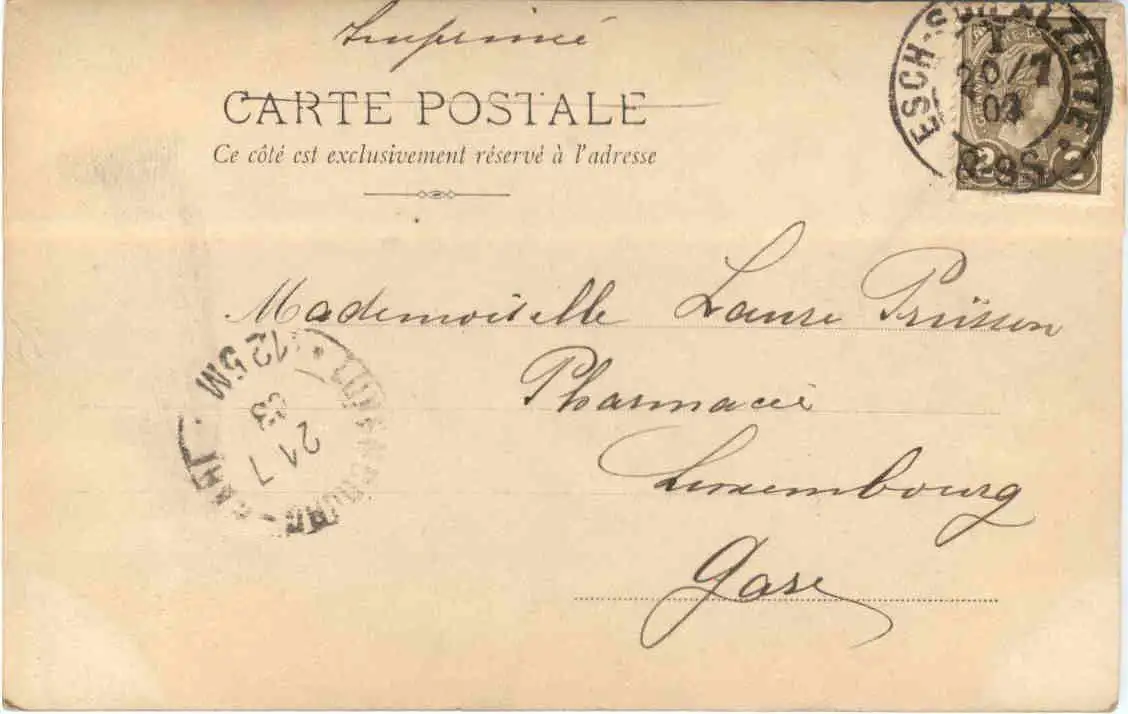 Imprimé
CARTE POSTALE
Ce côté est exclusivement réservé à l'adresse
ESCH-SUR-ALZETTE
20/7
03
8-9S
2 2
Mademoiselle Laure Prüssen
Pharmacie
Luxembourg
Gare
LUXEMBOURG-GARE
12 5M
21 7
03